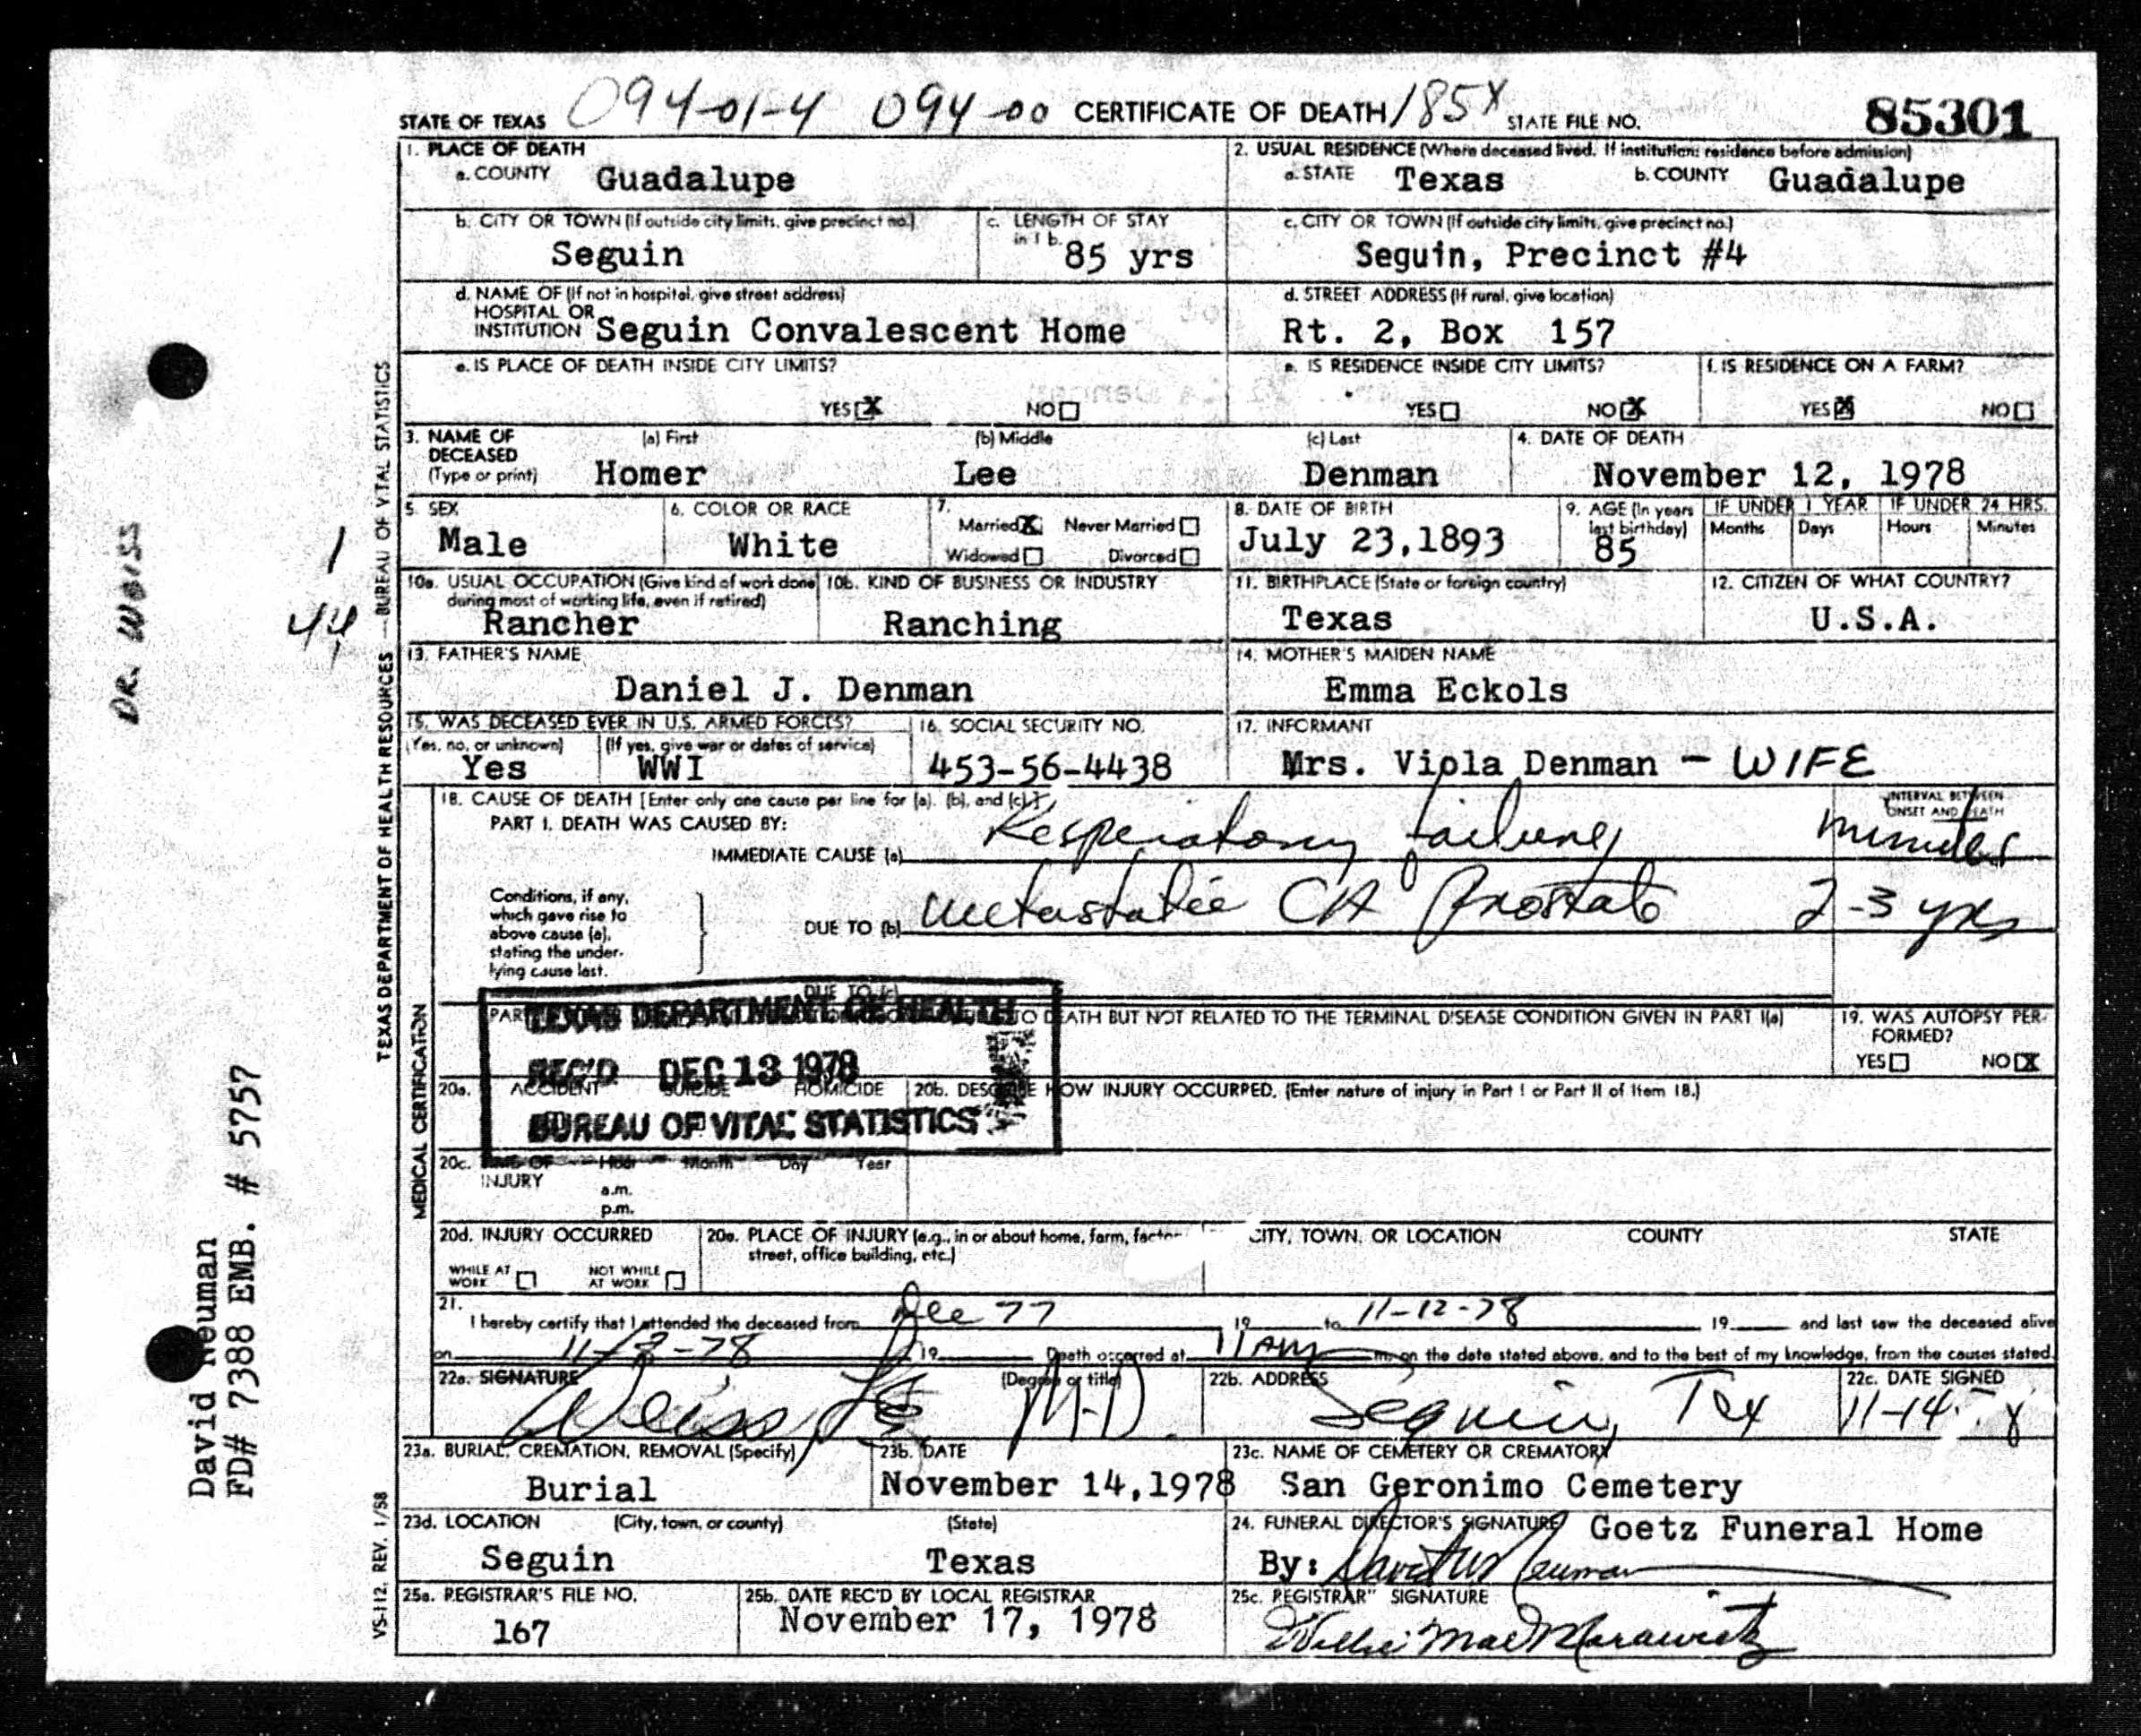 STATE OF TEXAS 094-01-4 094-00 CERTIFICATE OF DEATH /185X STATE FILE NO. 85301
1. PLACE OF DEATH
a. COUNTY Guadalupe
2. USUAL RESIDENCE (Where deceased lived. If institution: residence before admission)
a. STATE Texas b. COUNTY Guadalupe
b. CITY OR TOWN (If outside city limits, give precinct no.)
Seguin
c. LENGTH OF STAY
in 1 b. 85 yrs
c. CITY OR TOWN (If outside city limits, give precinct no.)
Seguin, Precinct #4
d. NAME OF (If not in hospital, give street address)
HOSPITAL OR
INSTITUTION Seguin Convalescent Home
d. STREET ADDRESS (If rural, give location)
Rt. 2, Box 157
e. IS PLACE OF DEATH INSIDE CITY LIMITS?
YES X NO
e. IS RESIDENCE INSIDE CITY LIMITS?
YES NO X
f. IS RESIDENCE ON A FARM?
YES X NO
3. NAME OF
DECEASED
(Type or print)
(a) First
Homer
(b) Middle
Lee
(c) Last
Denman
4. DATE OF DEATH
November 12, 1978
5. SEX
Male
6. COLOR OR RACE
White
7.
Married X Never Married
Widowed Divorced
8. DATE OF BIRTH
July 23,1893
9. AGE (In years
last birthday)
85
IF UNDER 1 YEAR
Months Days
IF UNDER 24 HRS.
Hours Minutes
10a. USUAL OCCUPATION (Give kind of work done
during most of working life, even if retired)
Rancher
10b. KIND OF BUSINESS OR INDUSTRY
Ranching
11. BIRTHPLACE (State or foreign country)
Texas
12. CITIZEN OF WHAT COUNTRY?
U.S.A.
13. FATHER'S NAME
Daniel J. Denman
14. MOTHER'S MAIDEN NAME
Emma Eckols
15. WAS DECEASED EVER IN U.S. ARMED FORCES?
(Yes, no, or unknown) (If yes, give war or dates of service)
Yes WWI
16. SOCIAL SECURITY NO.
453-56-4438
17. INFORMANT
Mrs. Viola Denman - WIFE
18. CAUSE OF DEATH [Enter only one cause per line for (a), (b), and (c).]
PART I. DEATH WAS CAUSED BY:
IMMEDIATE CAUSE (a) Respiratory failure
INTERVAL BETWEEN
ONSET AND DEATH
minutes
Conditions, if any,
which gave rise to
above cause (a),
stating the under-
lying cause last.
DUE TO (b) Metastatic CA Prostate 2-3 yrs
DUE TO (c)
TO DEATH BUT NOT RELATED TO THE TERMINAL DISEASE CONDITION GIVEN IN PART I(a)
19. WAS AUTOPSY PER-
FORMED?
YES NO X
TEXAS DEPARTMENT OF HEALTH
REC'D DEC 13 1978
BUREAU OF VITAL STATISTICS
20a. ACCIDENT SUICIDE HOMICIDE
20b. DESCRIBE HOW INJURY OCCURRED. (Enter nature of injury in Part I or Part II of Item 18.)
20c. TIME OF Hour Month Day Year
INJURY
a.m.
p.m.
20d. INJURY OCCURRED
WHILE AT
WORK
NOT WHILE
AT WORK
20e. PLACE OF INJURY (e.g., in or about home, farm, factor
street, office building, etc.)
CITY, TOWN, OR LOCATION COUNTY STATE
21.
I hereby certify that I attended the deceased from Dec 77 19 to 11-12-78 19 and last saw the deceased alive
on 19 Death occurred at 11 AM m. on the date stated above, and to the best of my knowledge, from the causes stated.
22a. SIGNATURE (Degree or title)
Weiss M-D
22b. ADDRESS
Seguin, Tex
22c. DATE SIGNED
11-14-
23a. BURIAL, CREMATION, REMOVAL (Specify)
Burial
23b. DATE
November 14,1978
23c. NAME OF CEMETERY OR CREMATORY
San Geronimo Cemetery
23d. LOCATION (City, town, or county) (State)
Seguin Texas
24. FUNERAL DIRECTOR'S SIGNATURE Goetz Funeral Home
By: David Neuman
25a. REGISTRAR'S FILE NO.
167
25b. DATE REC'D BY LOCAL REGISTRAR
November 17, 1978
25c. REGISTRAR" SIGNATURE
Willie Mae
TEXAS DEPARTMENT OF HEALTH RESOURCES — BUREAU OF VITAL STATISTICS
MEDICAL CERTIFICATION
VS-112, REV. 1/58
DR. Weiss
1
44
David Neuman
FD# 7388 EMB. # 5757